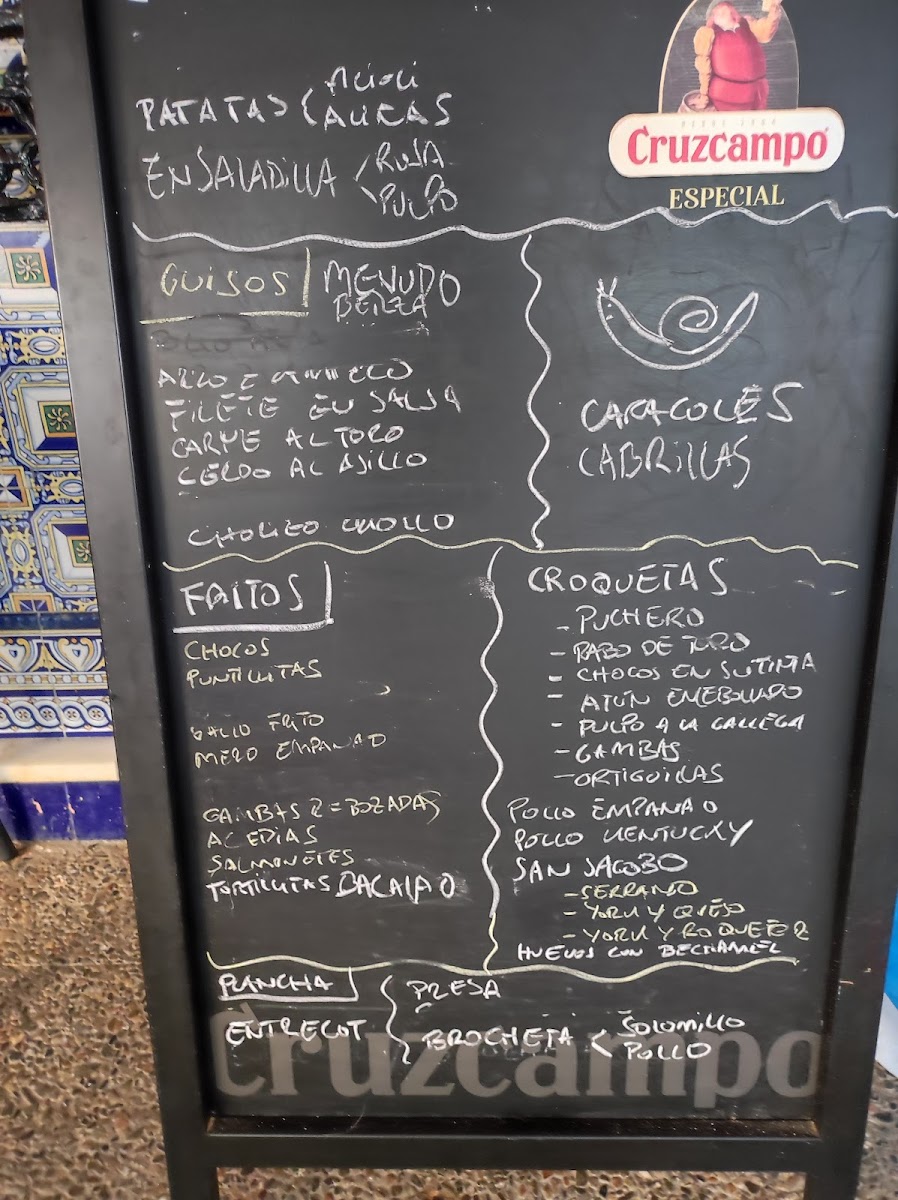 Cruzcampo
ESPECIAL
PATATAS ALIOLI
ALIÑÁS
ENSALADILLA RUSA
PULPO
GUISOS MENUDO
BERZA
FILETE EN SALSA
CARNE AL TORO
CERDO AL AJILLO
CHORIZO CRIOLLO
CARACOLES
CABRILLAS
FRITOS
CHOCOS
PUNTILLITAS
GALLO FRITO
MERO EMPANAO
GAMBAS REBOZADAS
ACEDIAS
SALMONETES
TORTILLITAS BACALAO
CROQUETAS
- PUCHERO
- RABO DE TORO
- CHOCOS EN SU TINTA
- ATÚN ENCEBOLLADO
- PULPO A LA GALLEGA
- GAMBAS
- ORTIGUILLAS
POLLO EMPANAO
POLLO KENTUCKY
SAN JACOBO
- SERRANO
- YORK Y QUESO
- YORK Y ROQUEFOR
HUEVOS CON BECHAMEL
PLANCHA
ENTRECOT
PRESA
BROCHETA SOLOMILLO
POLLO
Cruzcampo